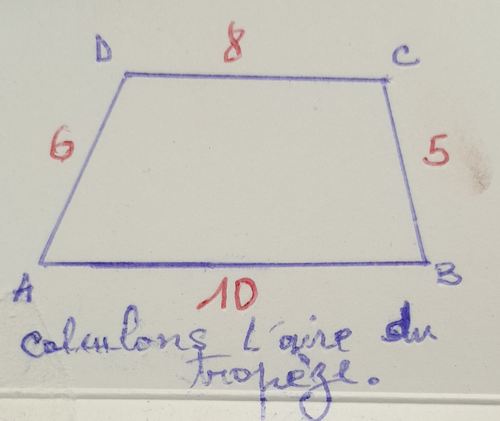 D 8 C
6 5
A 10 B
calculons l'aire du
trapèze.